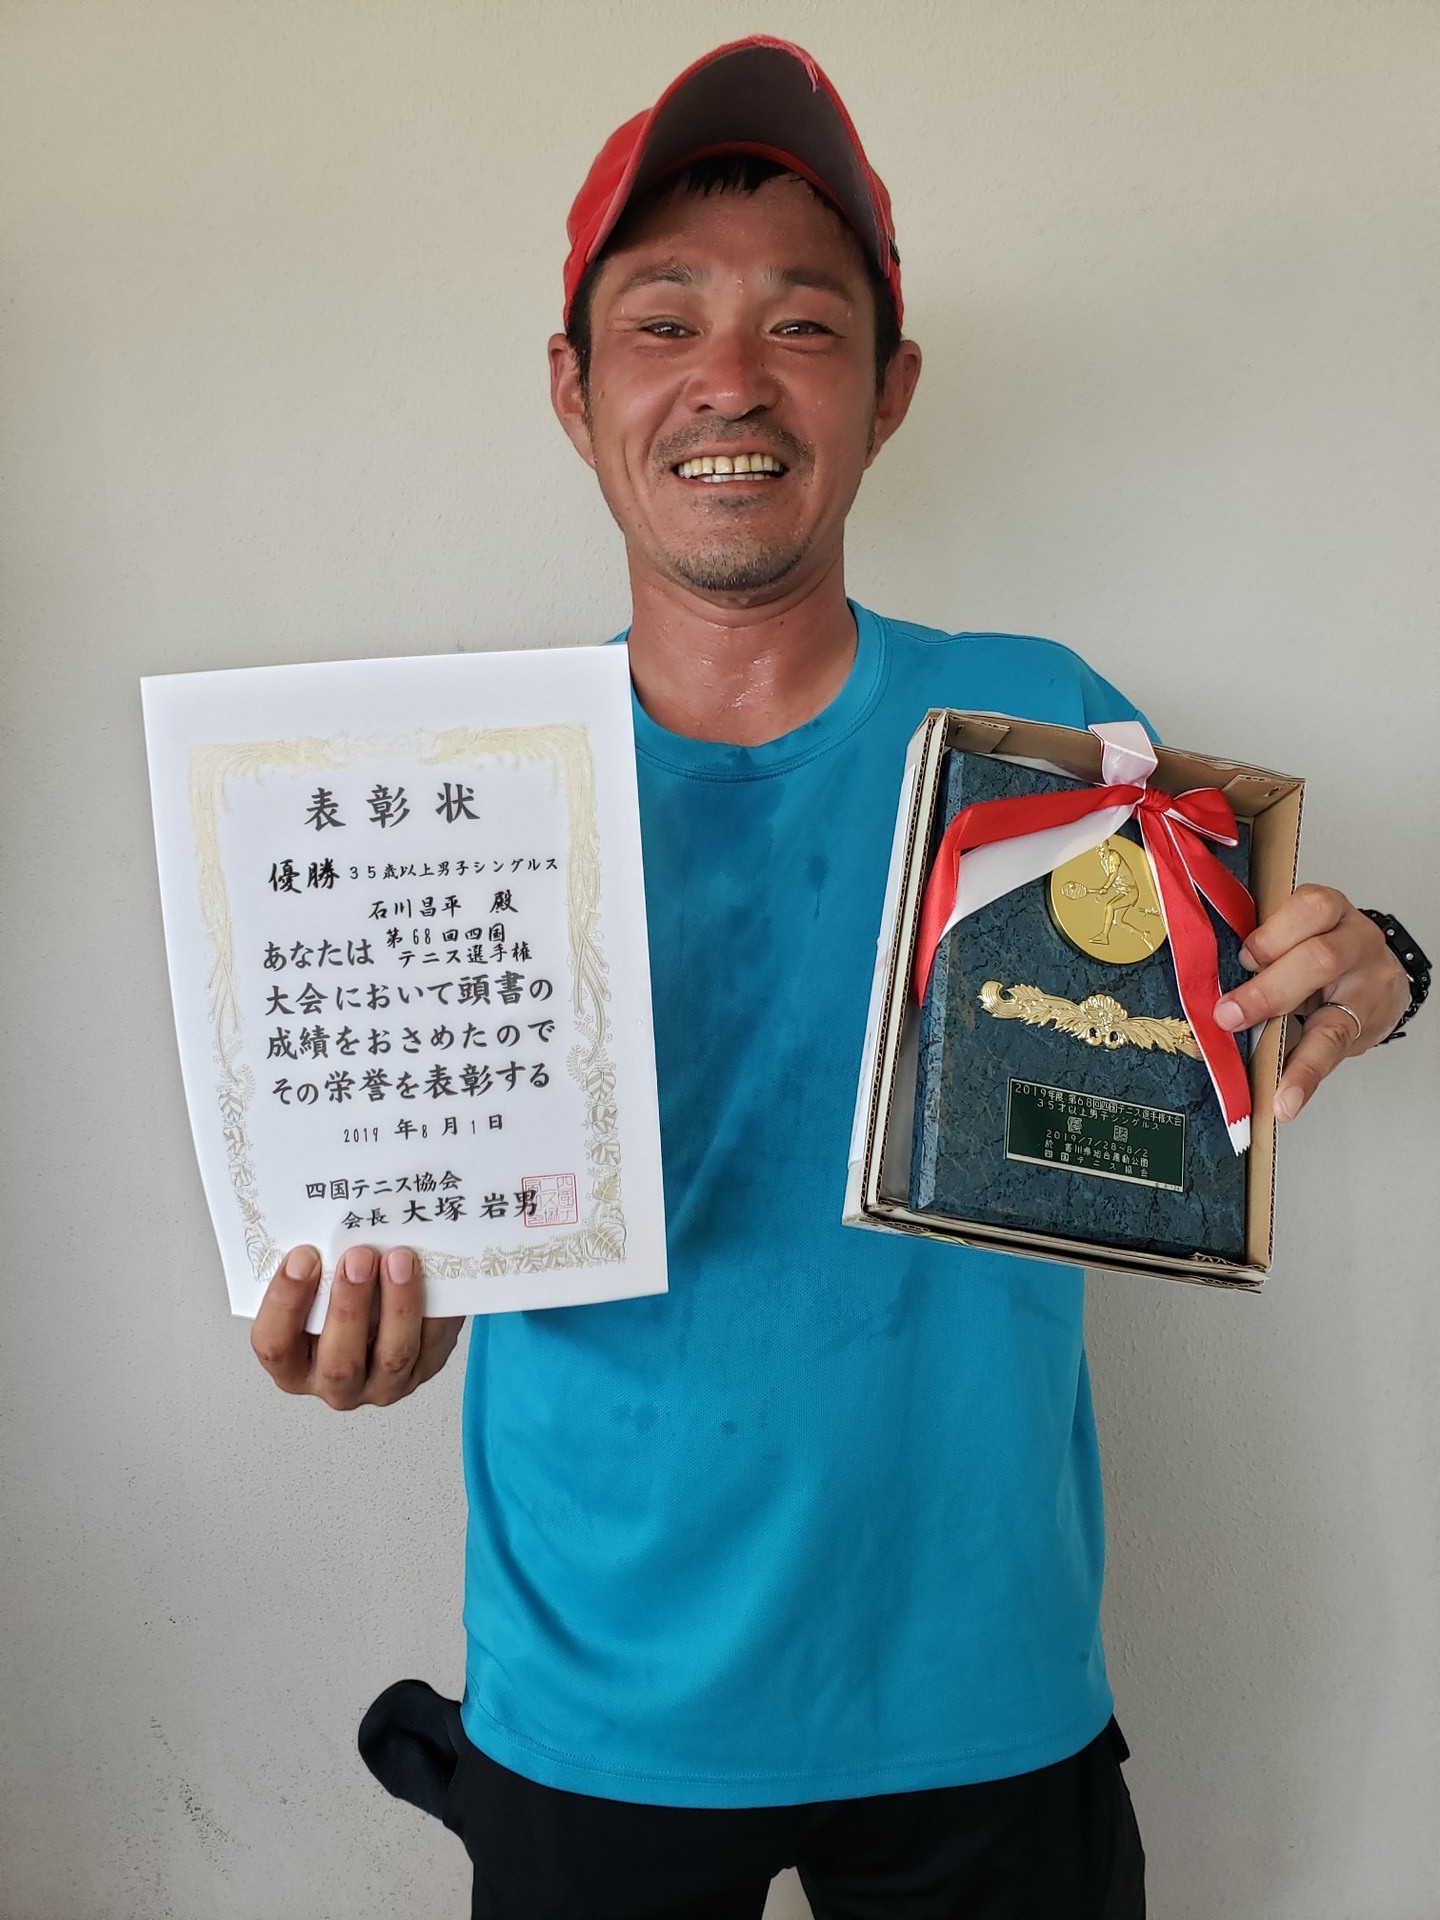 表彰状
優勝 35歳以上男子シングルス
石川昌平 殿
あなたは 第68回四国
テニス選手権
大会において頭書の
成績をおさめたので
その栄誉を表彰する
2019 年 8 月 1 日
四国テニス協会
会長 大塚 岩男
2019年度 第68回四国テニス選手権大会
35才以上男子シングルス
優 勝
2019/7/28~8/2
於 香川県総合運動公園
四国テニス協会